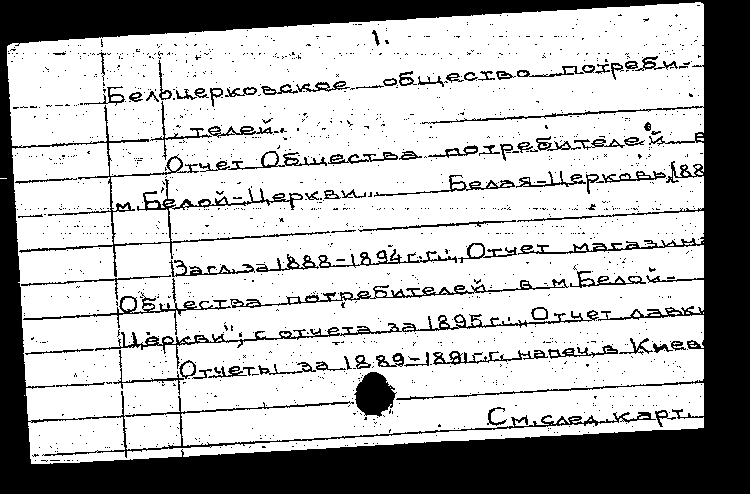 1.
Белоцерковское общество потреби-
телей.
Отчет Общества потребителей в
м. Белой-Церкви... Белая-Церковь, [188
Загл. за 1888-1894 г.г.: „Отчет магазина
Общества потребителей в м. Белой-
Церкви"; с отчета за 1895 г.: „Отчет лавки
Отчеты за 1889-1891 г.г. напеч. в Киеве
См. след. карт.